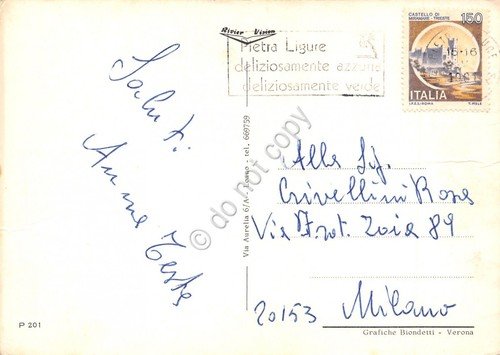 Rivier Vision
Pietra Ligure
deliziosamente azzurra
deliziosamente verde
CASTELLO DI
MIRAMARE - TRIESTE
150
15-16
ITALIA
I.P.Z.S. - ROMA
T. MELE
Saluti
Anna
Alla Sig.
Crivellini Rosa
Via F.
Zoia 89
20153 Milano
Via Aurelia 6/A - tel. 669759
do not copy
P 201
Grafiche Biondetti - Verona